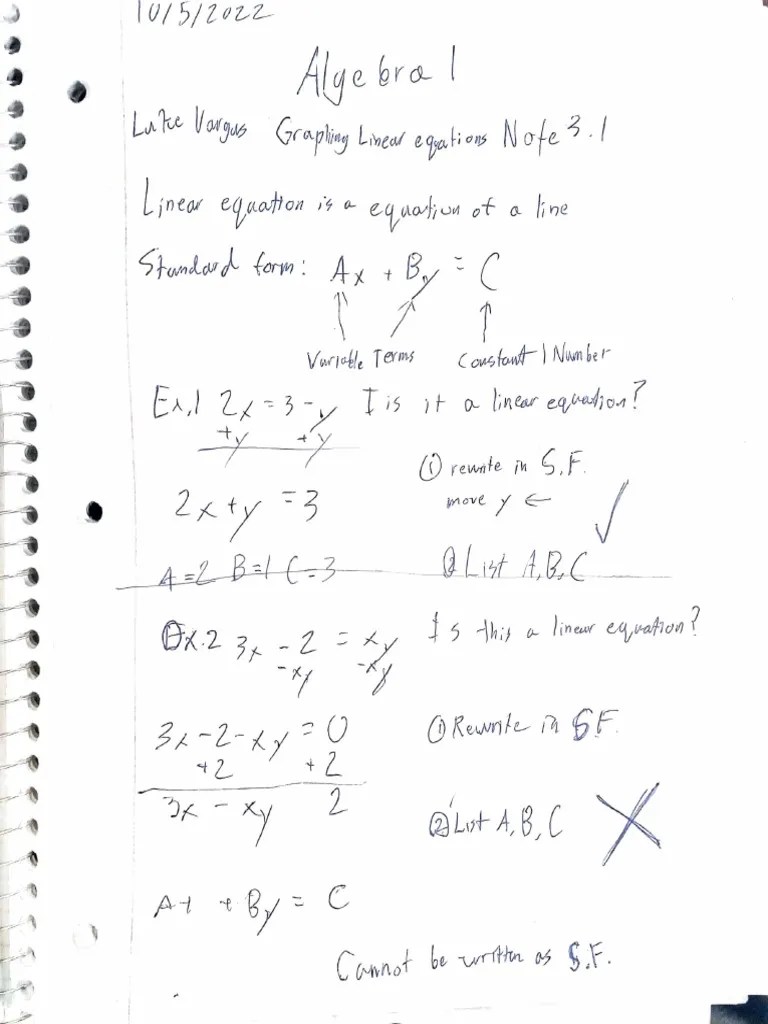 10/5/2022
Algebra 1
Luke Vargus Graphing Linear equations Note 3.1
Linear equation is a equation of a line
Standard form: Ax + By = C
Variable Terms Constant | Number
Ex.1 2x = 3 - y Is it a linear equation?
+y +y
① rewrite in S.F.
move y ←
2x + y = 3 ✓
A=2 B=1 C=3 ② List A, B, C
Ex.2 3x - 2 = xy Is this a linear equation?
-xy -xy
3x - 2 - xy = 0 ① Rewrite in S.F.
+2 +2
3x - xy 2
② List A, B, C X
Ax + By = C
Cannot be written as S.F.